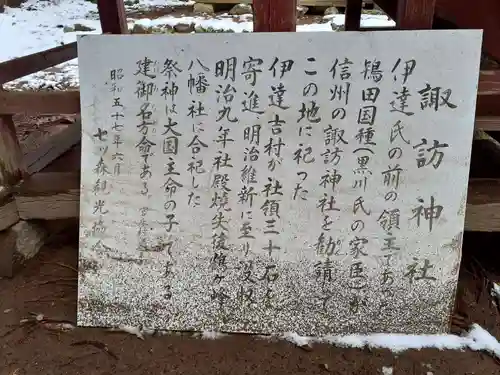 諏訪神社
伊達氏の前の領主であった
鴇田国種(黒川氏の家臣)が
信州の諏訪神社を勧請して
この地に祀った
伊達吉村が社領三十石を
寄進明治維新に至り没収
明治九年社殿焼失後館ヶ峰
八幡社に合祀した
祭神は大国主命の子である
建御名方命である。
昭和五十七年六月
七ツ森観光協会